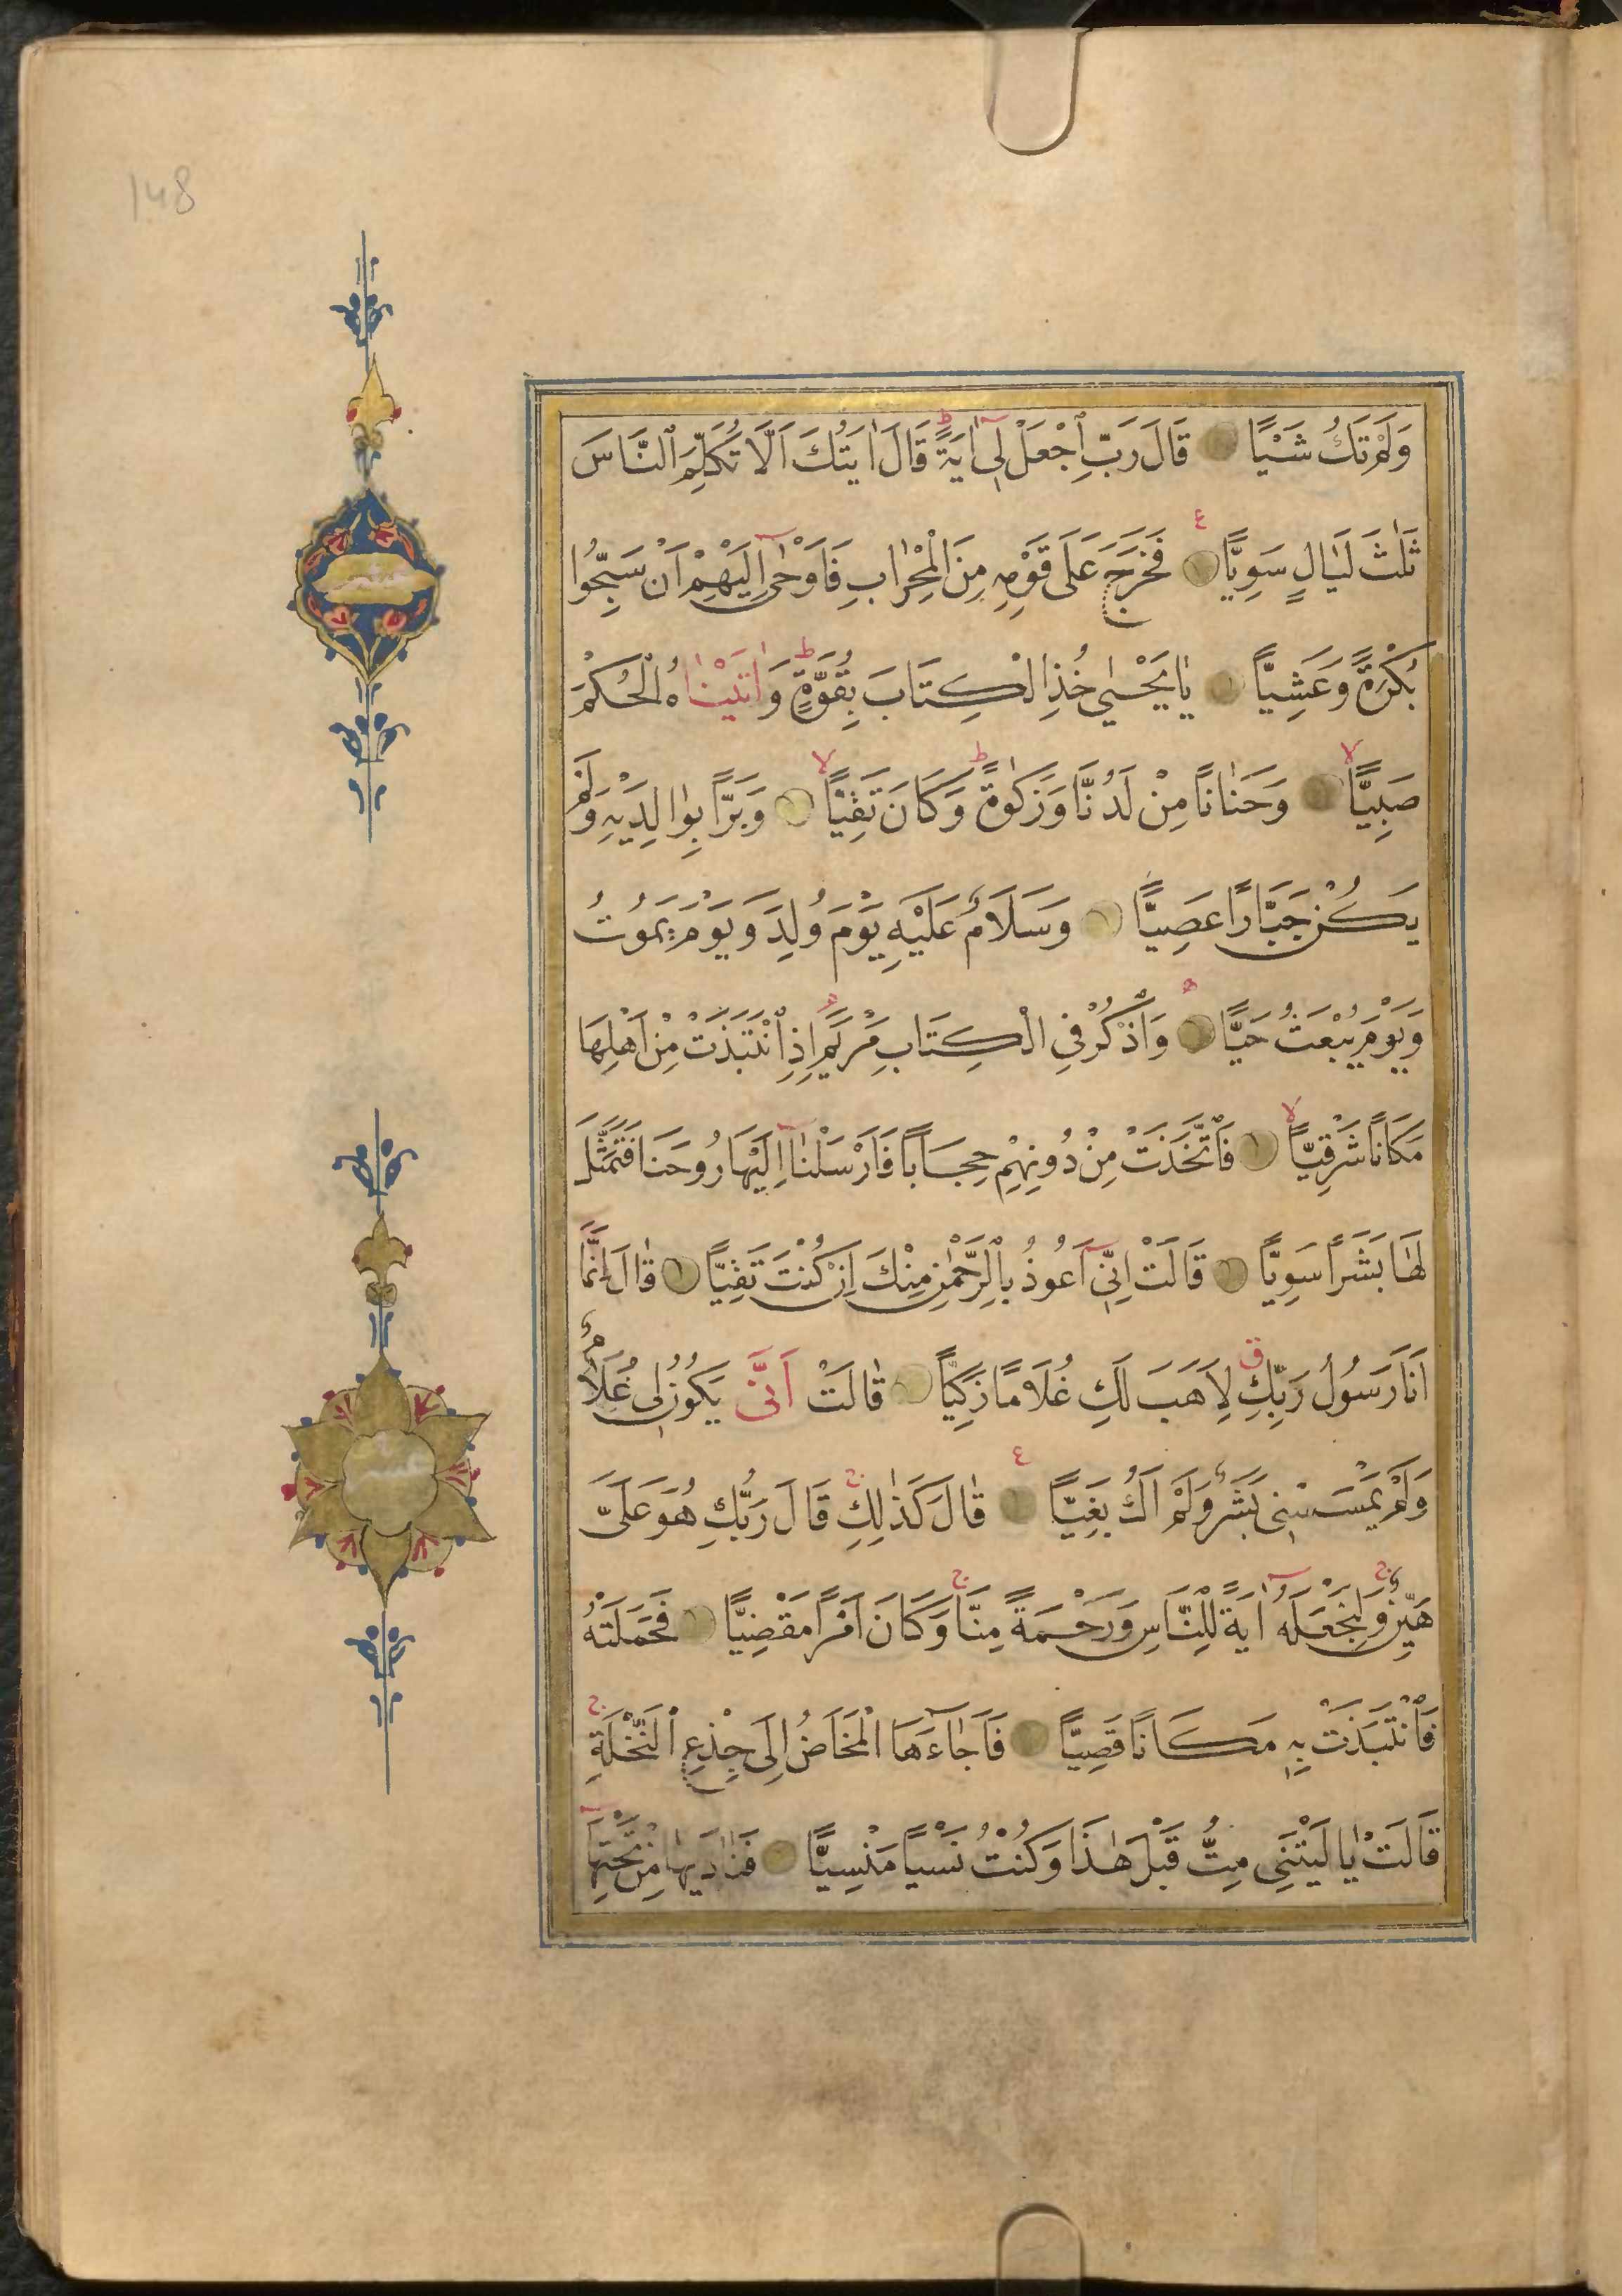 148
وَلَمْ تَكُ شَيْئًا قَالَ رَبِّ ٱجْعَلْ لِى اٰيَةً قَالَ اٰيَتُكَ اَلَّا تُكَلِّمَ ٱلنَّاسَ
ثَلٰثَ لَيَالٍ سَوِيًّا فَخَرَجَ عَلَى قَوْمِهِ مِنَ الْمِحْرَابِ فَاَوْحٰى اِلَيْهِمْ اَنْ سَبِّحُوا
بُكْرَةً وَعَشِيًّا يَا يَحْيٰى خُذِ الْكِتَابَ بِقُوَّةٍ وَاٰتَيْنَاهُ الْحُكْمَ
صَبِيًّا وَحَنَانًا مِنْ لَدُنَّا وَزَكٰوةً وَكَانَ تَقِيًّا وَبَرًّا بِوَالِدَيْهِ وَلَمْ
يَكُنْ جَبَّارًا عَصِيًّا وَسَلَامٌ عَلَيْهِ يَوْمَ وُلِدَ وَيَوْمَ يَمُوتُ
وَيَوْمَ يُبْعَثُ حَيًّا وَاذْكُرْ فِي الْكِتَابِ مَرْيَمَ اِذِ انْتَبَذَتْ مِنْ اَهْلِهَا
مَكَانًا شَرْقِيًّا فَاتَّخَذَتْ مِنْ دُونِهِمْ حِجَابًا فَاَرْسَلْنَا اِلَيْهَا رُوحَنَا فَتَمَثَّلَ
لَهَا بَشَرًا سَوِيًّا قَالَتْ اِنِّى اَعُوذُ بِالرَّحْمٰنِ مِنْكَ اِنْ كُنْتَ تَقِيًّا قَالَ اِنَّمَا
اَنَا رَسُولُ رَبِّكِ لِاَهَبَ لَكِ غُلَامًا زَكِيًّا قَالَتْ اَنّٰى يَكُونُ لِى غُلَامٌ
وَلَمْ يَمْسَسْنِى بَشَرٌ وَلَمْ اَكُ بَغِيًّا قَالَ كَذٰلِكِ قَالَ رَبُّكِ هُوَ عَلَىَّ
هَيِّنٌ وَلِنَجْعَلَهُ اٰيَةً لِلنَّاسِ وَرَحْمَةً مِنَّا وَكَانَ اَمْرًا مَقْضِيًّا فَحَمَلَتْهُ
فَانْتَبَذَتْ بِهِ مَكَانًا قَصِيًّا فَاَجَاءَهَا الْمَخَاضُ اِلَى جِذْعِ النَّخْلَةِ
قَالَتْ يَا لَيْتَنِى مِتُّ قَبْلَ هٰذَا وَكُنْتُ نَسْيًا مَنْسِيًّا فَنَادٰيهَا مِنْ تَحْتِهَا